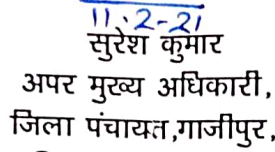 11.2-21
सुरेश कुमार
अपर मुख्य अधिकारी,
जिला पंचायत,गाजीपुर,